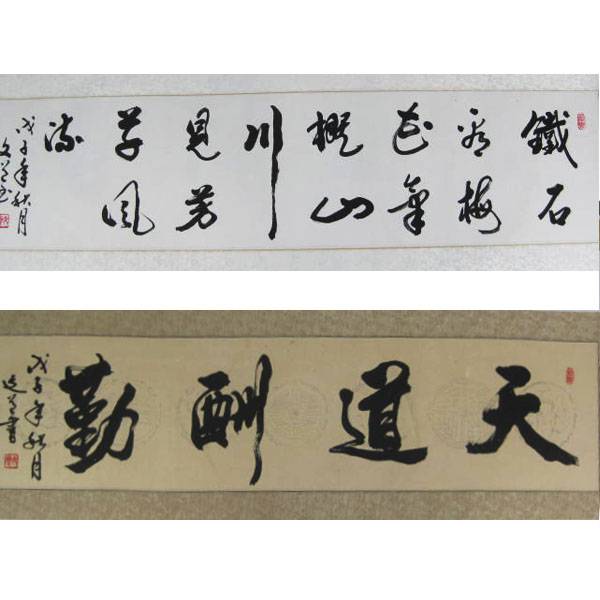 鐵石
看梅
花氣
概山
川
見芳
草風
流
戊子年秋月
天道酬勤
戊子年秋月
書